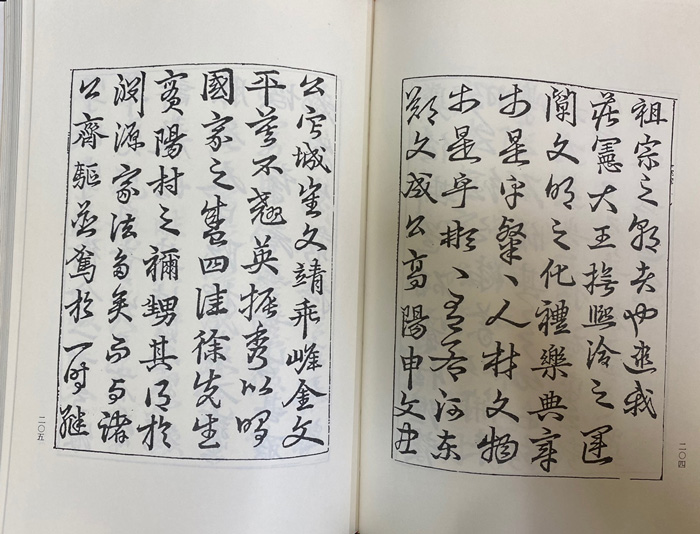 祖宗之朝 逮我
莊憲大王撫熙洽之運
闡文明之化禮樂典章
於是乎粲〻人材文物
於是乎彬〻有若河東
鄭文成公高陽申文忠
二〇四
公寧城崔文靖乖崖金文
平莫不翹英振秀以鳴
國家之盛四佳徐先生
實陽村之禰甥其得於
淵源家法多矣而與諸
公齊驅並駕於一時繼
二〇五